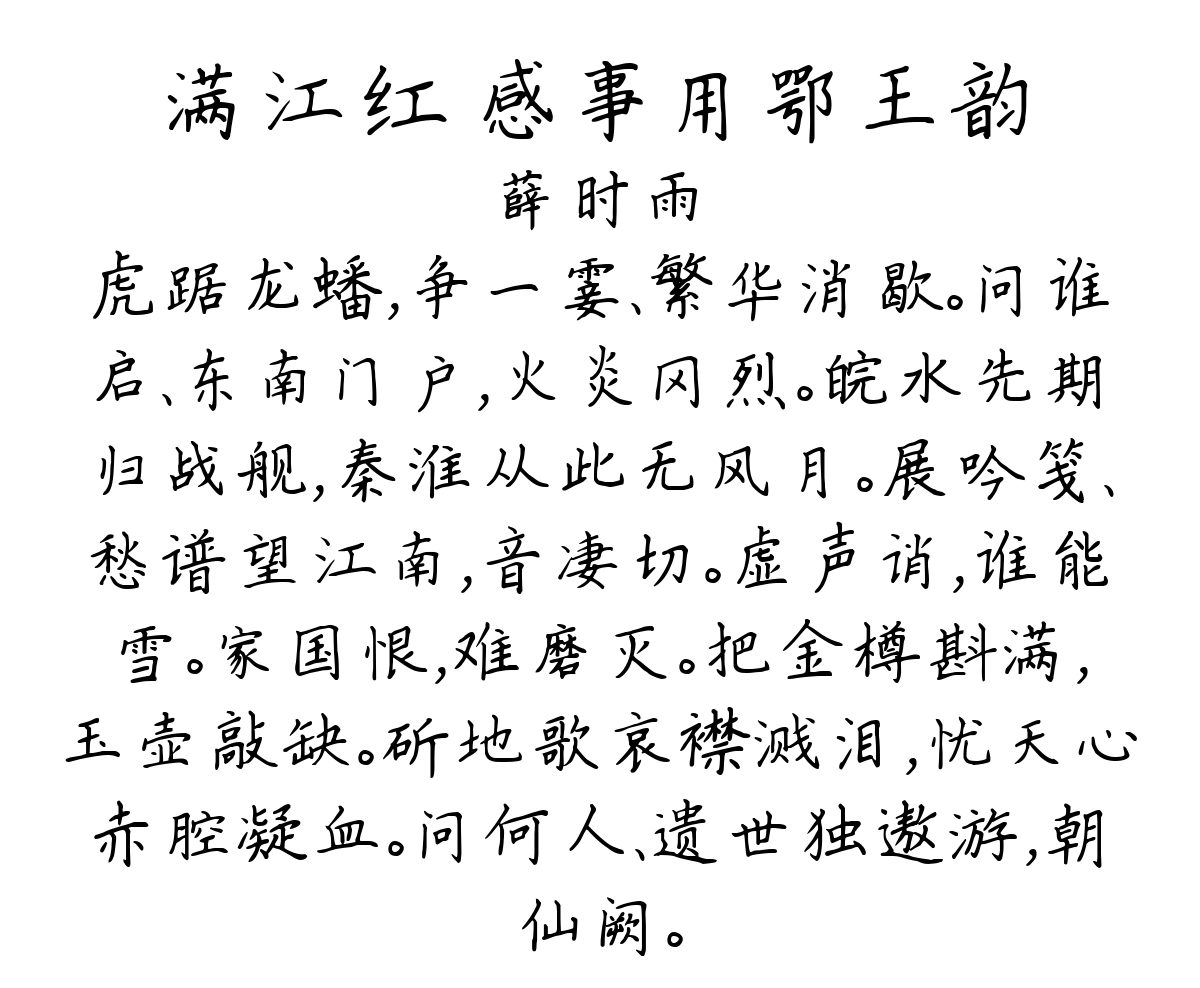 满江红感事用鄂王韵
薛时雨
虎踞龙蟠,争一霎、繁华消歇。问谁
启、东南门户,火炎冈烈。皖水先期
归战舰,秦淮从此无风月。展吟笺、
愁谱望江南,音凄切。虚声诮,谁能
雪。家国恨,难磨灭。把金樽斟满,
玉壶敲缺。斫地歌哀襟溅泪,忧天心
赤腔凝血。问何人、遗世独遨游,朝
仙阙。